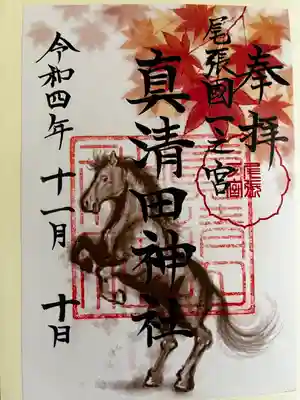 奉拝
尾張國一之宮
尾張
真清田神社
令和四年 十一月 十日